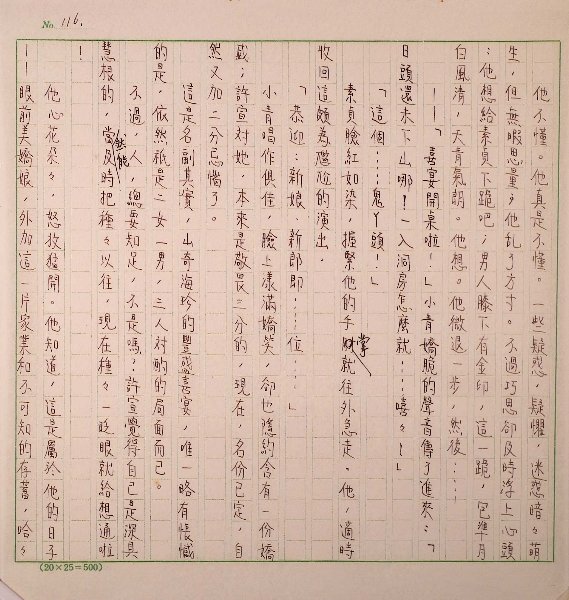 No. 116.
他不懂。他真是不懂。一些疑惑，疑懼，迷惑暗々萌
生，但無暇思量；他乱了方寸。不過巧思卻及時浮上心頭
：他想給素貞下跪吧；男人膝下有金印，這一跪，包準月
白風清，天青氣朗。他想。他微退一步，然後……
——「喜宴開桌啦！」小青嬌脆的聲音傳了進來：「
日頭還未下山哪！—入洞房怎麼就……嘻々！」
「這個……鬼丫頭！」
素貞臉紅如染，握緊他的手掌就往外急走。他，適時
收回這頗為尷尬的演出。
「恭迎：新娘：新郎即……位……」
小青唱作俱佳，臉上漾滿嬌笑，卻也隱約含有一份嬌
戚；許宣对她，本來是敬畏三分的，現在，名份已定，自
然又加二分忌憚了。
這是名副其實，山奇海珍的豐盛喜宴，唯一略有悵憾
的是，依然祇是二女一男，三人对酌的局面而已。
不過，人，總要知足，不是嗎？許宣覺得自己是深具
慧根的，當然能及時把種々以往，現在種々一眨眼就給想通啦
！
他心花朵々，怒放猛開。他知道，這是屬於他的日子
——眼前美嬌娘，外加這一片家業和不可知的存蓄，哈々
(20×25=500)